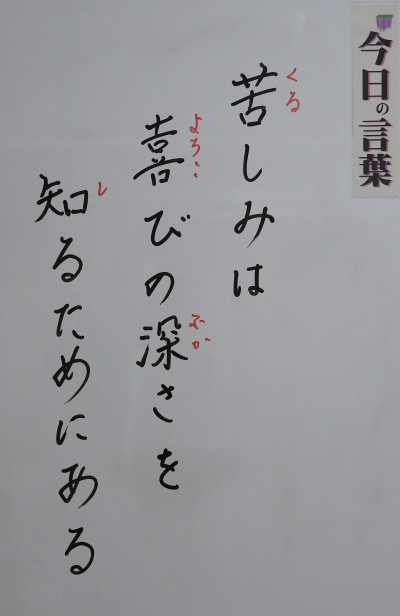 今日の言葉
苦しみは
くる
喜びの深さを
よろこ
ふか
知るためにある
し